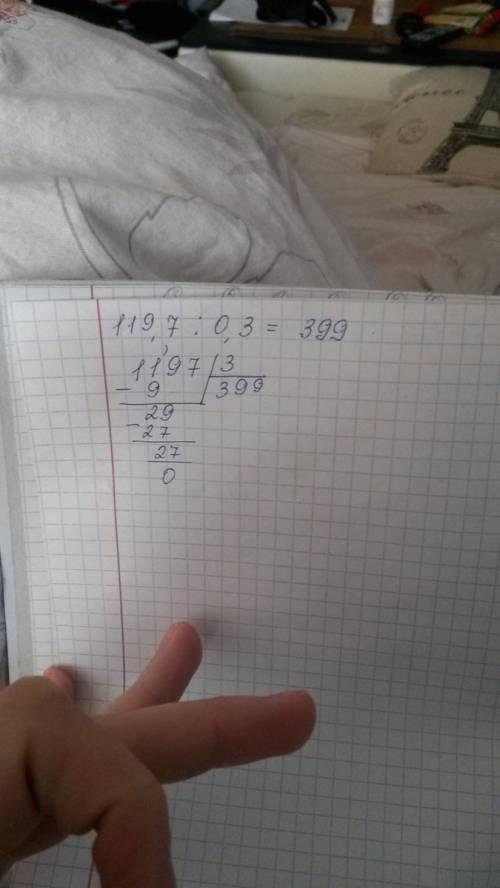 119,7 : 0,3 = 399
1197 | 3
- 9 399
29
- 27
27
0